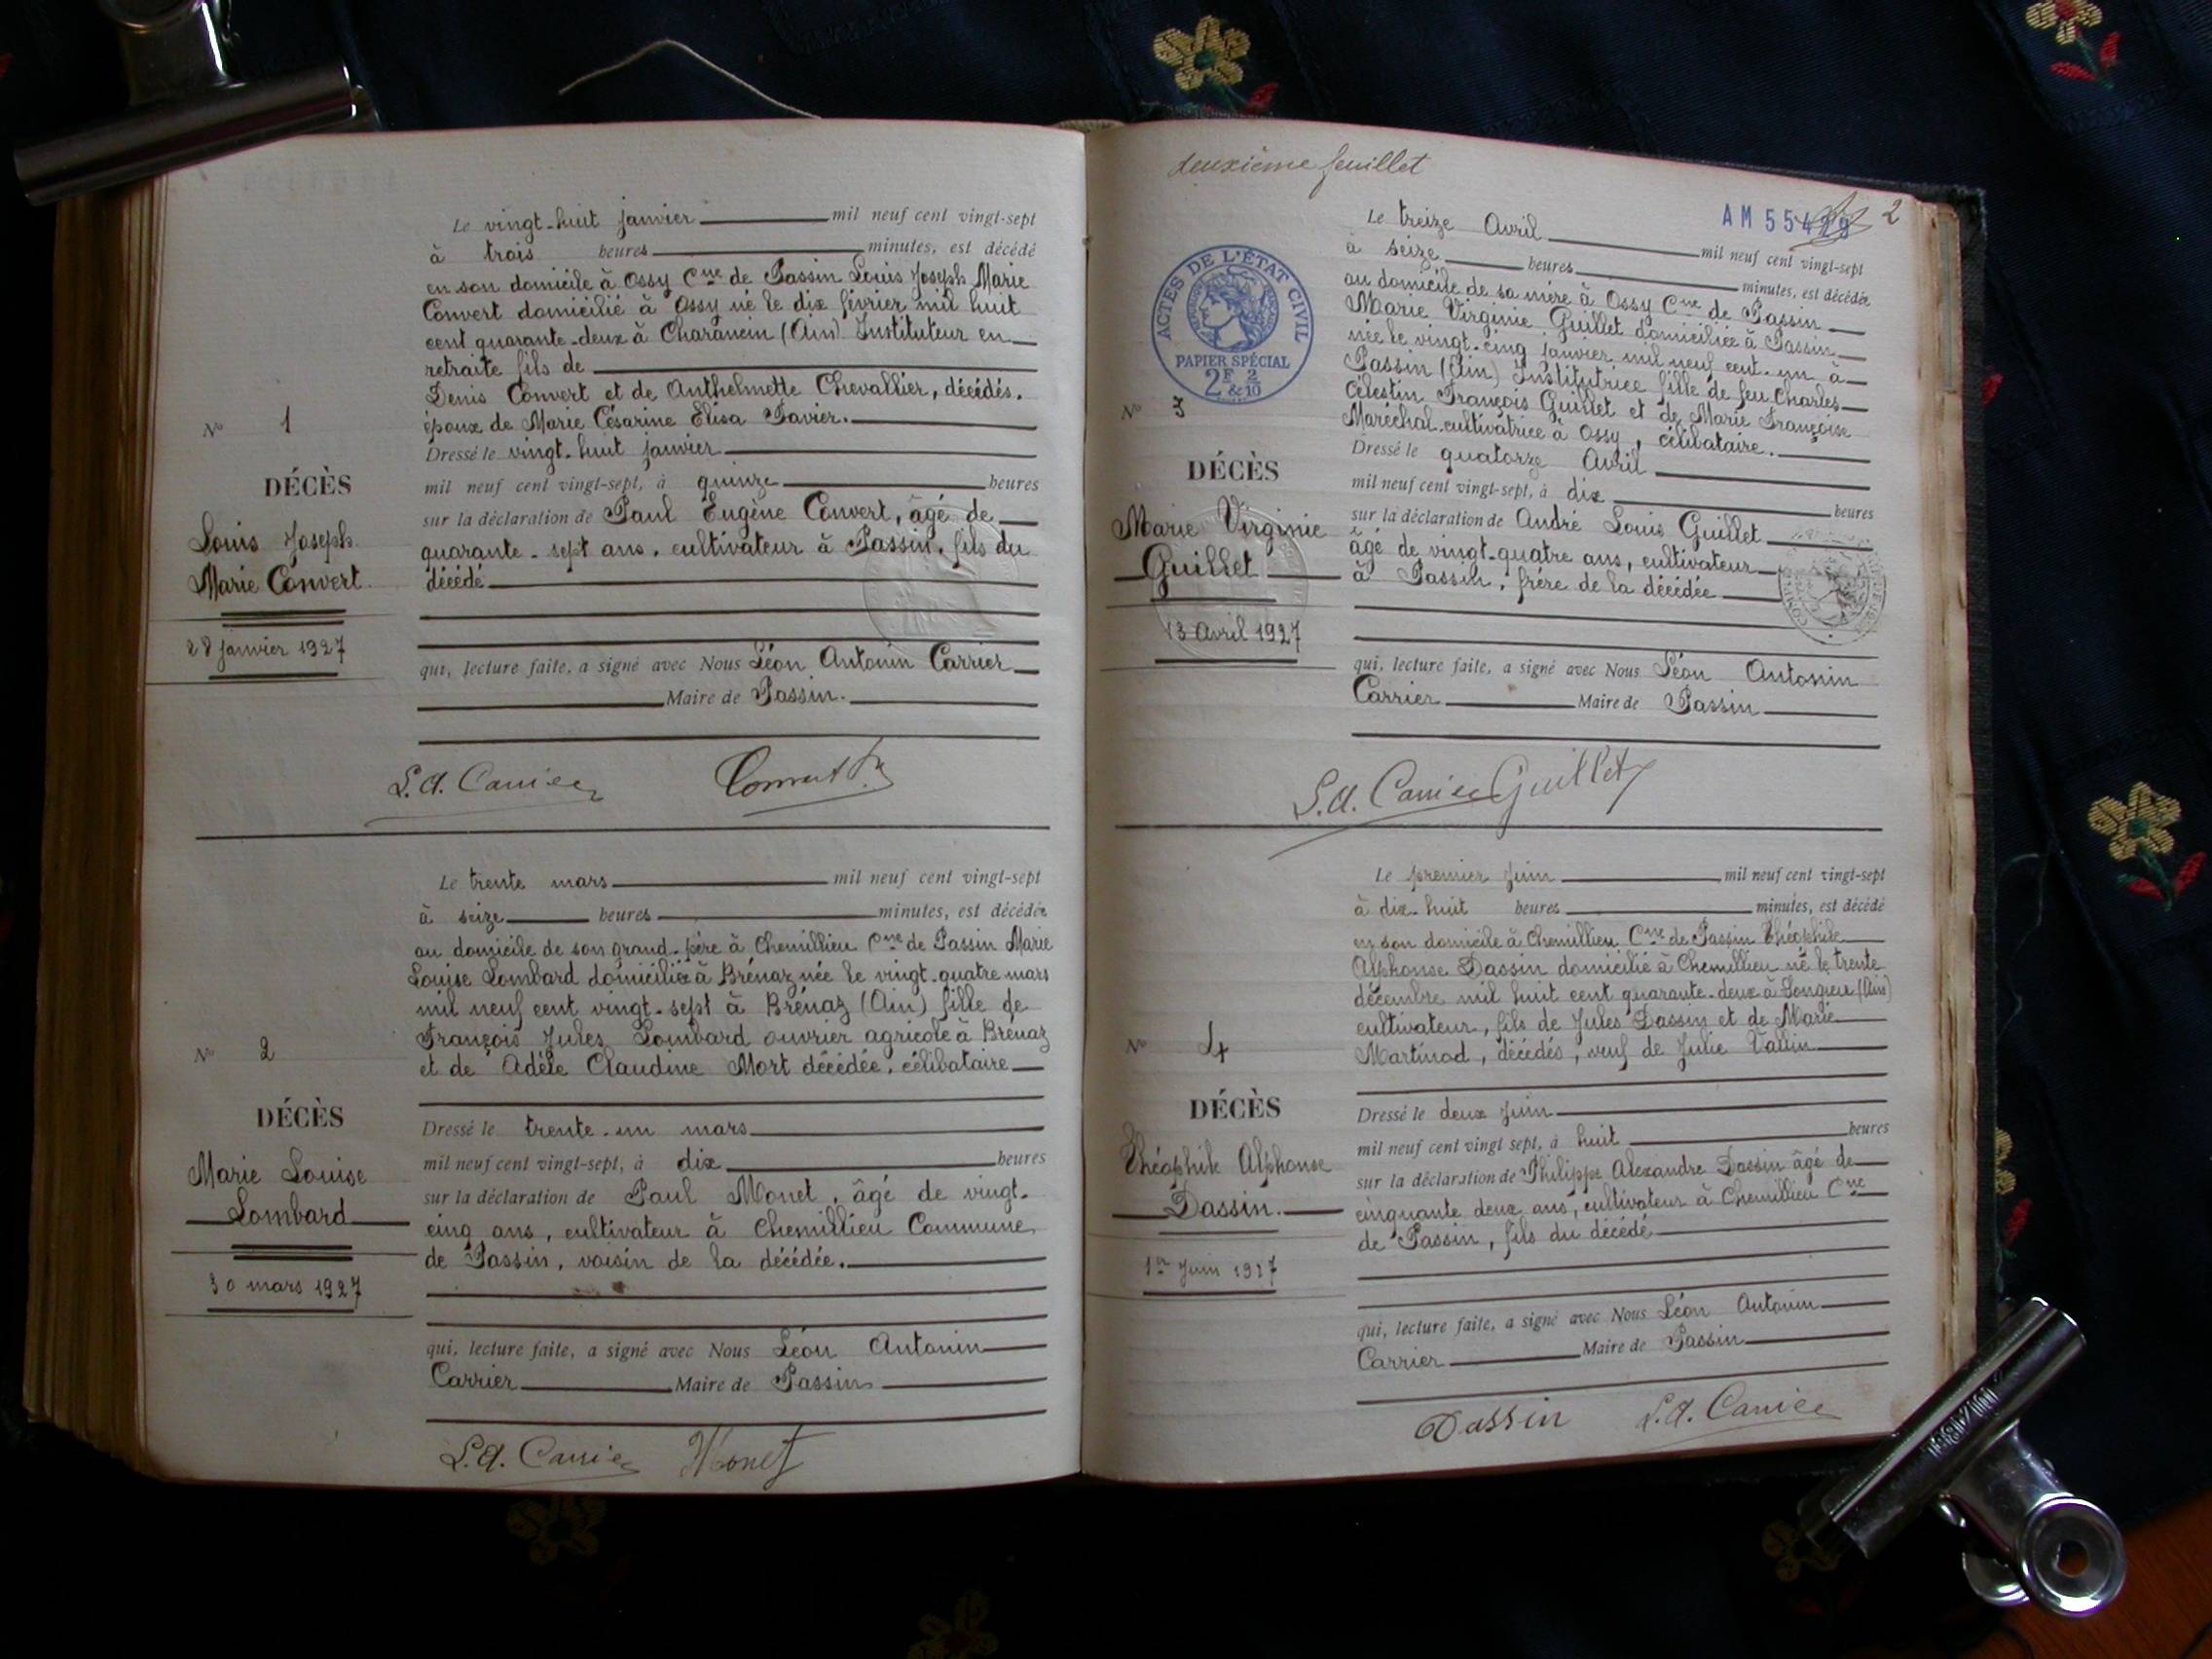 Le vingt-huit janvier mil neuf cent vingt-sept
à trois heures minutes, est décédé
en son domicile à Ossy Cne de Passin Louis Joseph Marie
Convert domicilié à Ossy né le dix février mil huit
cent quarante-deux à Charancin (Ain) Instituteur en
retraite fils de
Denis Convert et de Anthelmette Chevallier, décédés.
époux de Marie Césarine Elisa Favier.
Dressé le vingt-huit janvier
mil neuf cent vingt-sept, à quinze heures
sur la déclaration de Paul Eugène Convert, âgé de
quarante-sept ans, cultivateur à Passin, fils du
décédé
qui, lecture faite, a signé avec Nous Léon Antonin Carrier
Maire de Passin.
N° 1
DÉCÈS
Louis Joseph
Marie Convert
28 janvier 1927
L.A. Carrier Convert
Le trente mars mil neuf cent vingt-sept
à seize heures minutes, est décédée
au domicile de son grand-père à Chemillieu Cne de Passin Marie
Louise Lombard domiciliée à Brénaz née le vingt-quatre mars
mil neuf cent vingt-sept à Brénaz (Ain) fille de
François Jules Lombard ouvrier agricole à Brénaz
et de Adèle Claudine Mort décédée, célibataire
Dressé le trente-un mars
mil neuf cent vingt-sept, à dix heures
sur la déclaration de Paul Monet, âgé de vingt-
cinq ans, cultivateur à Chemillieu Commune
de Passin, voisin de la décédée.
qui, lecture faite, a signé avec Nous Léon Antonin
Carrier Maire de Passin
N° 2
DÉCÈS
Marie Louise
Lombard
30 mars 1927
L.A. Carrier Monet
deuxième feuillet
AM 55429
2
ACTES DE L'ÉTAT CIVIL
PAPIER SPÉCIAL
2F & 2/10
Le treize Avril mil neuf cent vingt-sept
à seize heures minutes, est décédée
au domicile de sa mère à Ossy Cne de Passin
Marie Virginie Guillet domiciliée à Passin
née le vingt-cinq janvier mil neuf cent-un à
Passin (Ain) Institutrice fille de feu Charles
Célestin François Guillet et de Marie Françoise
Maréchal cultivatrice à Ossy, célibataire.
Dressé le quatorze Avril
mil neuf cent vingt-sept, à dix heures
sur la déclaration de André Louis Guillet
âgé de vingt-quatre ans, cultivateur
à Passin, frère de la décédée
qui, lecture faite, a signé avec Nous Léon Antonin
Carrier Maire de Passin
N° 3
DÉCÈS
Marie Virginie
Guillet
13 Avril 1927
L.A. Carrier Guillet
Le premier Juin mil neuf cent vingt-sept
à dix-huit heures minutes, est décédé
en son domicile à Chemillieu Cne de Passin Théophile
Alphonse Dassin domicilié à Chemillieu né le trente
décembre mil huit cent quarante-deux à Songieu (Ain)
cultivateur, fils de Jules Dassin et de Marie
Martinod, décédés, veuf de Julie Vallin
Dressé le deux Juin
mil neuf cent vingt sept, à huit heures
sur la déclaration de Philippe Alexandre Dassin âgé de
cinquante deux ans, cultivateur à Chemillieu Cne
de Passin, fils du décédé
qui, lecture faite, a signé avec Nous Léon Antonin
Carrier Maire de Passin
N° 4
DÉCÈS
Théophile Alphonse
Dassin.
1er Juin 1927
Dassin L.A. Carrier